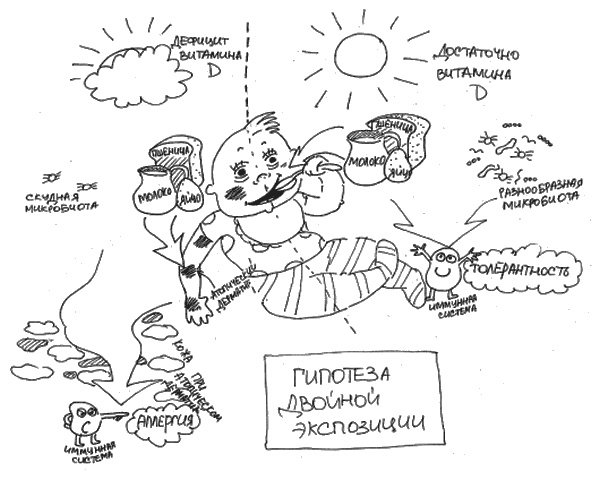 ДЕФИЦИТ
ВИТАМИНА
D
ДОСТАТОЧНО
ВИТАМИНА
D
ПШЕНИЦА
МОЛОКО
ЯЙЦО
ПШЕНИЦА
МОЛОКО
ЯЙЦО
СКУДНАЯ
МИКРОБИОТА
РАЗНООБРАЗНАЯ
МИКРОБИОТА
АТОПИЧЕСКИЙ
ДЕРМАТИТ
ТОЛЕРАНТНОСТЬ
ИММУННАЯ
СИСТЕМА
КОЖА ПРИ
АТОПИЧЕСКОМ
ДЕРМАТИТЕ
АЛЛЕРГИЯ
ИММУННАЯ
СИСТЕМА
ГИПОТЕЗА
ДВОЙНОЙ
ЭКСПОЗИЦИИ